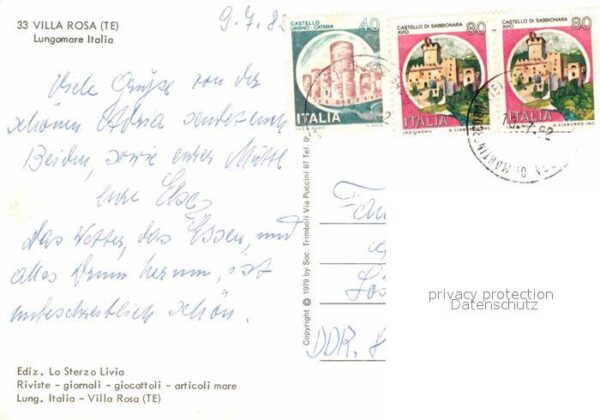 33 VILLA ROSA (TE)
Lungomare Italia
9.7.82
Viele Grüße von der
schönen Adria sendet Euch
Beiden, sowie eurer Mutti
eure Else,
Das Wetter, das Essen, und
alles Drum herum, ist
unbeschreiblich schön.
Ediz. Lo Sterzo Livia
Riviste - giornali - giocattoli - articoli mare
Lung. Italia - Villa Rosa (TE)
Copyright © 1979 by Soc. Trimboli Via Puccini 67 Tel. 0
CASTELLO
URSINO - CATANIA
40
ITALIA
CASTELLO DI SABBIONARA
AVIO
80
ITALIA
CASTELLO DI SABBIONARA
AVIO
80
ITALIA
Fam
Lös
DDR. 8
privacy protection
Datenschutz